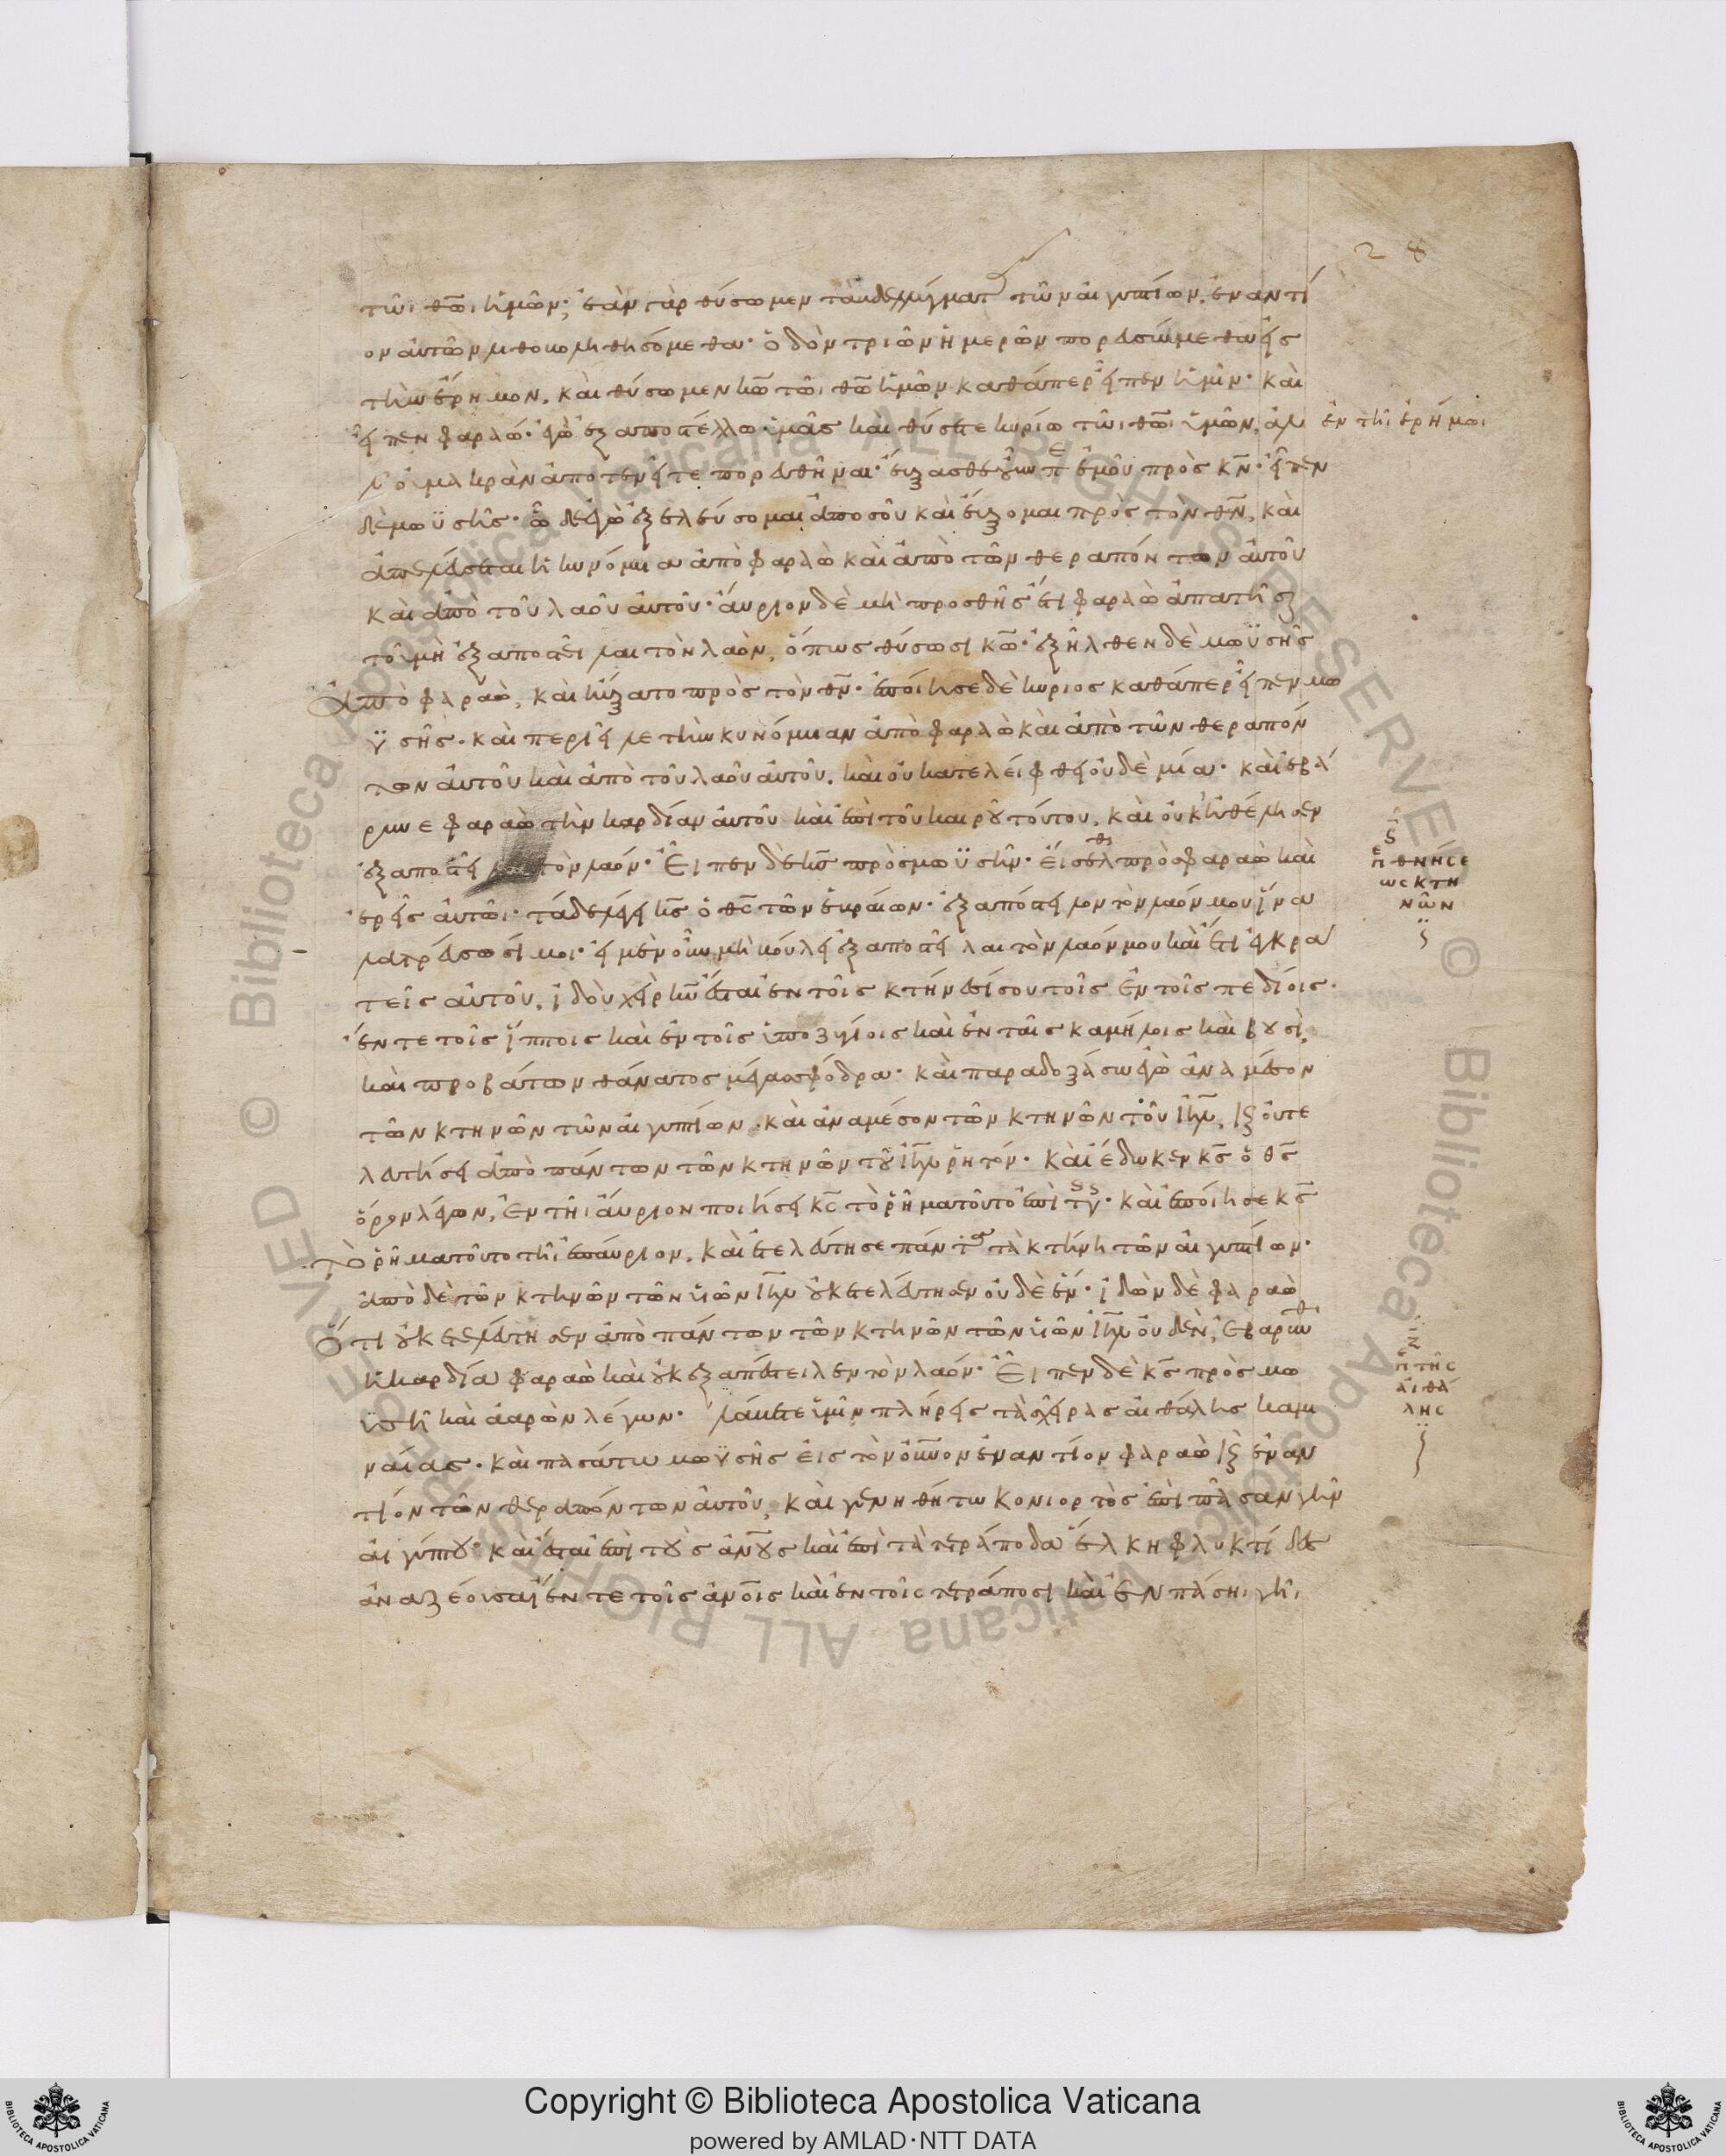 28
τῶι θῶι ἡμῶν; ἐὰν γὰρ θύσωμεν τὰ βδελύγματ τῶν αἰγυπτίων, ἐναντί
ον αὐτῶν λιθοβοληθησόμεθα· ὁδὸν τριῶν ἡμερῶν πορευσώμεθα εἰς
τὴν ἔρημον, καὶ θύσωμεν κω τῶι θω ἡμῶν καθάπερ εἶπεν ἡμῖν· καὶ
εἶπεν φαραώ· ἐγὼ ἐξαποστέλλω ὑμᾶς καὶ θύσατε κυρίω τῶι θῶι ὑμῶν, ἀλ
ἐν τῆι ἐρήμωι
λ' οὐ μακρὰν ἀποτενεῖτε πορευθῆναι· εὔξασθε οὖν πε ἐμοῦ πρὸς κν· εἶπεν
δὲ μωϋσῆς· ὧδε ἐγὼ ἐξελεύσομαι ἀπὸ σοῦ καὶ εὔξομαι πρὸς τὸν θν, καὶ
ἀπελεύσεται ἡ κυνόμυια ἀπὸ φαραὼ καὶ ἀπὸ τῶν θεραπόντων αὐτοῦ
καὶ ἀπὸ τοῦ λαοῦ αὐτοῦ· αὔριον δὲ μὴ προσθῆς ἔτι φαραὼ ἀπατῆσ
τοῦ μὴ ἐξαποστεῖλαι τὸν λαὸν, ὅπως θύσωσι κω· ἐξῆλθεν δὲ μωϋσῆς
ἀπὸ φαραὼ, καὶ ηὔξατο πρὸς τὸν θν· ἐποίησε δὲ κύριος καθάπερ εἶπεν μω
ϋσῆς· καὶ περιεῖλε τὴν κυνόμυιαν ἀπὸ φαραὼ καὶ ἀπὸ τῶν θεραπόν
των αὐτοῦ καὶ ἀπὸ τοῦ λαοῦ αὐτοῦ, καὶ οὐ κατελείφθη οὐδὲ μία· καὶ ἐβά
ρυνε φαραὼ τὴν καρδίαν αὐτοῦ καὶ ἐπὶ τοῦ καιροῦ τούτου, καὶ οὐκ ἠθέλησεν
ἐξαποστεῖλαι τὸν λαόν· Εἶπεν δὲ κς πρὸς μωϋσῆν· εἴσελθ πρὸς φαραὼ καὶ
ἐρεῖς αὐτῶι· τάδε λέγει κς ὁ θς τῶν ἑβραίων· ἐξαπόστειλον τὸν λαόν μου ἵνα
λατρεύσωσί μοι· εἰ μὲν οὖν μὴ βούλει ἐξαποστεῖλαι τὸν λαόν μου καὶ ἔτι ἐγκρα
τεῖς αὐτοῦ, ἰδοὺ χεὶρ κυ ἔσται ἐν τοῖς κτήνεσί σου τοῖς ἐν τοῖς πεδίοις·
ἔν τε τοῖς ἵπποις καὶ ἐν τοῖς ὑποζυγίοις καὶ ἐν ταῖς καμήλοις καὶ βουσὶ
καὶ προβάτων θάνατος μέγας σφόδρα· καὶ παραδοξάσω ἐγὼ ἀνὰ μέσον
τῶν κτηνῶν τῶν αἰγυπτίων, καὶ ἀναμέσον τῶν κτηνῶν τοῦ ιηλ, κ οὐ τε
λευτήσει ἀπὸ πάντων τῶν κτηνῶν τοῦ ιηλ ῥητόν· καὶ ἔδωκεν κς ὁ θς
ὅρον λέγων, Ἐν τῆι αὔριον ποιήσει κς τὸ ῥῆμα τοῦτο ἐπὶ τ γς· καὶ ἐποίησε κς
Τὸ ῥῆμα τοῦτο τῆι ἐπαύριον, καὶ ἐτελεύτησε πάντα τὰ κτήνη τῶν αἰγυπτίων·
ἀπὸ δὲ τῶν κτηνῶν τῶν υἱῶν ιηλ οὐκ ἐτελεύτησεν οὐδὲ ἕν· ἰδὼν δὲ φαραὼ
Ὅτι οὐκ ἐτελεύτησεν ἀπὸ πάντων τῶν κτηνῶν τῶν υἱῶν ιηλ οὐδὲν, Ἐβαρύνθ
ἡ καρδία φαραὼ καὶ οὐκ ἐξαπέστειλεν τὸν λαόν· Εἶπεν δὲ κς πρὸς μω
ϋσῆ καὶ ἀαρὼν λέγων· λάβετε ὑμῖν πλήρεις τὰς χεῖρας αἰθάλης καμι
ναίας, καὶ πασάτω μωϋσῆς εἰς τὸν οὐνον ἐναντίον φαραὼ κ ἐναν
τίον τῶν θεραπόντων αὐτοῦ, καὶ γενηθήτω κονιορτὸς ἐπὶ πᾶσαν γῆν
αἰγύπτου· καὶ ἔσται ἐπὶ τοὺς ἀνους καὶ ἐπὶ τὰ τετράποδα ἕλκη φλυκτίδες
ἀναζέουσαι ἔν τε τοῖς ἀνοις καὶ ἐν τοῖς τετράποσι καὶ ἐν πάσηι γῆι
ϛ
πε θνήσε
ως κτη
νῶν
ζ
πε τῆς
αἰθά
λης
© Biblioteca Apostolica Vaticana ALL RIGHTS RESERVED
© Biblioteca Apostolica Vaticana ALL RIGHTS RESERVED
BIBLIOTECA APOSTOLICA VATICANA
Copyright © Biblioteca Apostolica Vaticana
powered by AMLAD·NTT DATA
BIBLIOTECA APOSTOLICA VATICANA